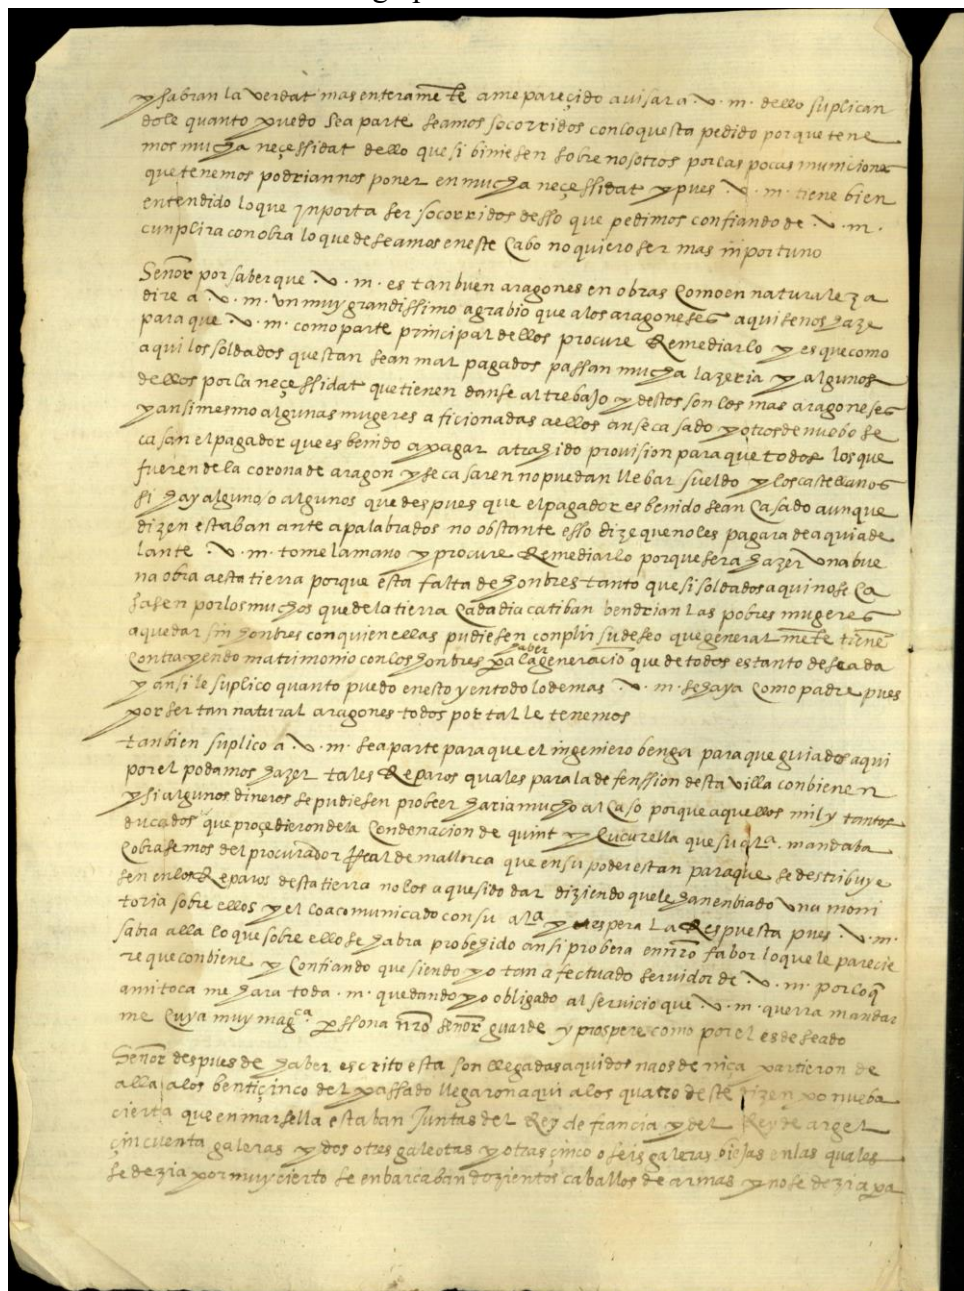 y sabran la verdat mas enterame te a me pareçido avisar a .v.m. dello suplican
dole quanto puedo sea parte seamos socorridos con lo questa pedido porque tene
mos mucha neçessidat dello que si biniesen sobre nosotros por las pocas municiones
que tenemos podriannos poner en mucha neçessidat y pues .v.m. tiene bien
entendido lo que ynporta ser socorridos desso que pedimos confiando de .v.m.
cunplira con obra lo que deseamos en este cabo no quiero ser mas inportuno
Señor por saber que .v.m. es tan buen aragones en obras como en naturaleza
dire a .v.m. un muy grandissimo agrabio que a los aragoneses aqui se nos haze
para que .v.m. como parte principal dellos procure Remediarlo y es que como
aqui los soldados questan sean mal pagados passan mucha lazeria y algunos
dellos por la neçessidat que tienen danse al trebajo y destos son los mas aragoneses
y ansimesmo algunas mugeres aficionadas a ellos anse casado y otros de nuebo se
casan el pagador que es benido a pagar a trahido provision para que todos los que
fueren de la corona de aragon y se casaren no puedan llebar sueldo y los castellanos
si hay alguno/o algunos que despues que el pagador es benido sean casado aunque
dizen estaban ante apalabrados no obstante esso dize que no les pagara de aqui ade
lante .v.m. tome la mano y procure Remediarlo porque sera hazer una bue
na obra a esta tierra porque esta falta de honbres tanto que si soldados aqui no se ca
sasen por los muchos que de la tierra cada dia catiban bendrian las pobres mugeres
a quedar sin honbres con quien ellas pudiesen conplir su deseo que general mete tiene
contrayendo matrimonio con los honbres pa haber la generacio que de todos es tanto deseada
y ansi le suplico quanto puedo en esto y en todo lo demas .v.m. se haya como padre pues
por ser tan natural aragones todos por tal le tenemos
tanbien suplico a .v.m. sea parte para que el ingeniero benga para que guiados aqui
por el podamos hazer tales Reparos quales para la defenssion desta villa conbienen
y si algunos dineros se pudiesen probeer haria mucho al caso porque aquellos mil y tantos
ducados que proçedieron de la condenacion de quint y cucurella que su al.ª mandaba
cobrasemos del procurador Real de mallorca que en su poder estan para que se destribuye
sen en los Reparos desta tierra no los a quesido dar diziendo que le han enbiado una moni
toria sobre ellos y el lo a comunicado con su al.ª y espera la Respuesta pues .v.m.
sabra alla lo que sobre ello se habra probehido ansi probera en nro fabor lo que le parecie
re que conbiene y confiando que siendo yo tan afectuado servidor de .v.m. por lo q
a mi toca me hara toda .m. quedando yo obligado al servicio que .v.m. querra mandar
me cuya muy magca perssona nro señor guarde y prospere como por el es deseado
Señor despues de haber escrito esta son llegadas aqui dos naos de niça partieron de
alla a los bentiçinco del passado llegaron aqui a los quatro deste dizen po nueba
cierta que en marsella estaban Juntas del Rey de francia y del Rey de argel
çincuenta galeras y dos o tres galeotas y otras çinco o seis galeras biejas en las quales
se dezia por muy cierto se enbarcaban dozientos caballos de armas y no se dezia pa